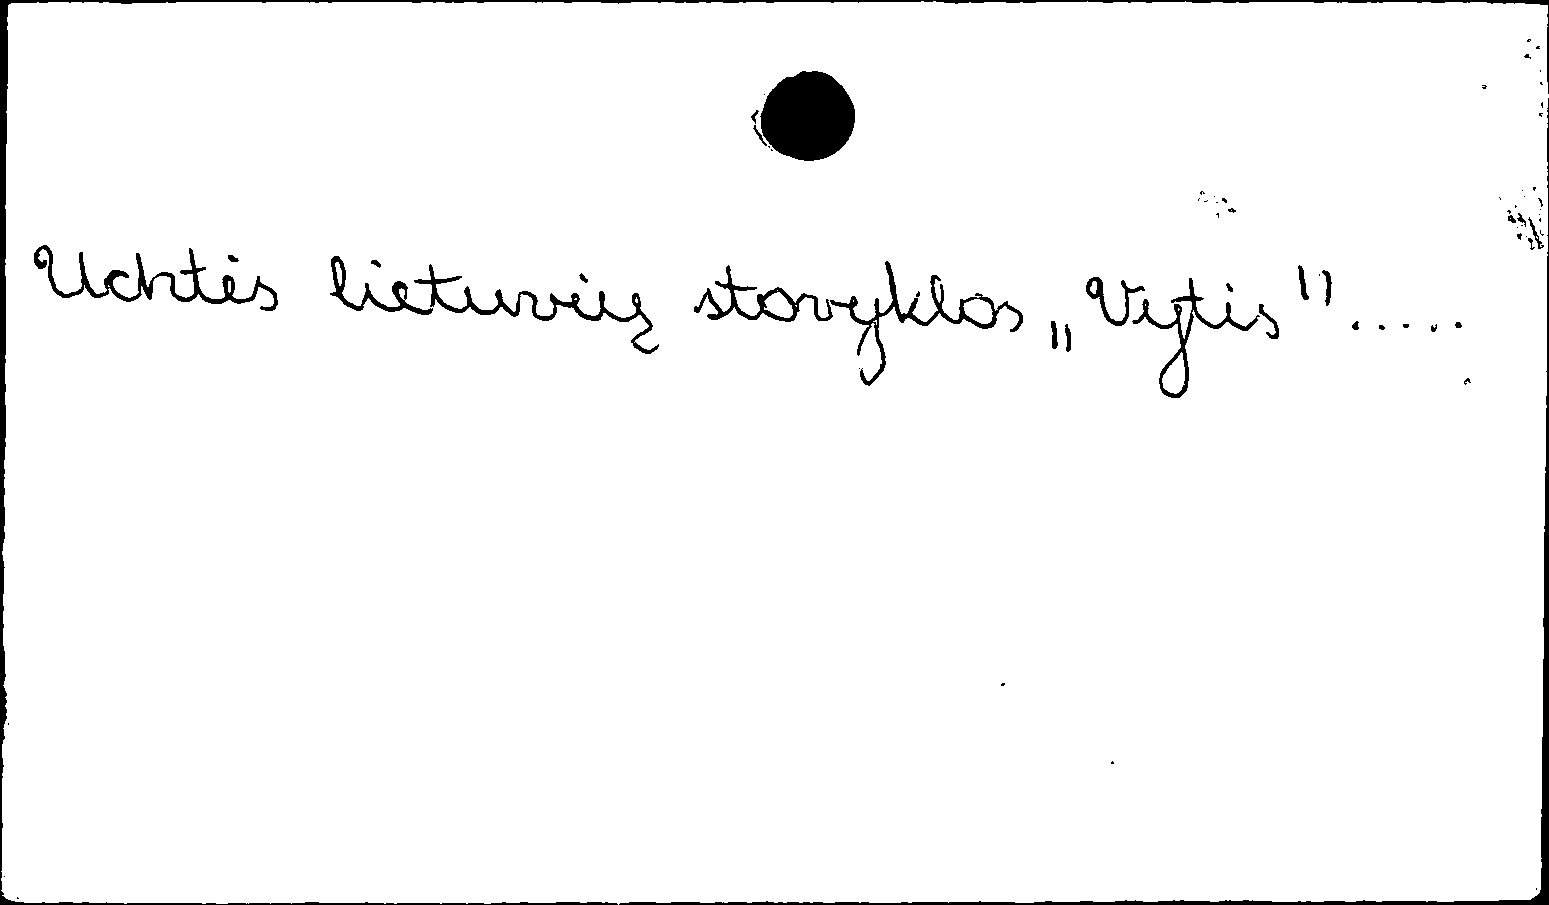 Uchtės lietuvių stovyklos „Vytis".....